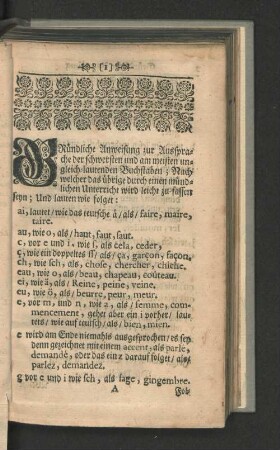 [1]
GRündliche Anweisung zur Ausspra-
che der schwersten und am meisten un-
gleich lautenden Buchstaben; Nach
welcher das übrige durch einen münd-
lichen Unterricht wird leicht zu fassen
seyn; Und lauten wie folget:
ai, lautet / wie das teutsche ä / als / faire, maire,
taire.
au, wie o, als / haut, faut, saut.
c, vor e und i, wie s, als cela, ceder,
ç, wie ein doppeltes ss / als / ça, garçon, façon,
ch, wie sch, als, chose, chercher, chiche.
eau, wie o, als / beau, chapeau, coûteau.
ei, wie ä, als / Reine, peine, veine.
eu, wie ö, als / beurre, peur, meur.
e, vor m, und n, wie a, als / femme, com-
mencement, gehet aber ein i vorher / lau-
tets / wie auf teutsch / als / bien, mien.
e wird am Ende niemahls ausgesprochen / es sey
denn gezeichnet mit einem accent, als parlé,
demandé, oder das ein z darauf folget / als /
parlez, demandez.
g vor e und i wie sch, als sage, gingembre.
A Fol-